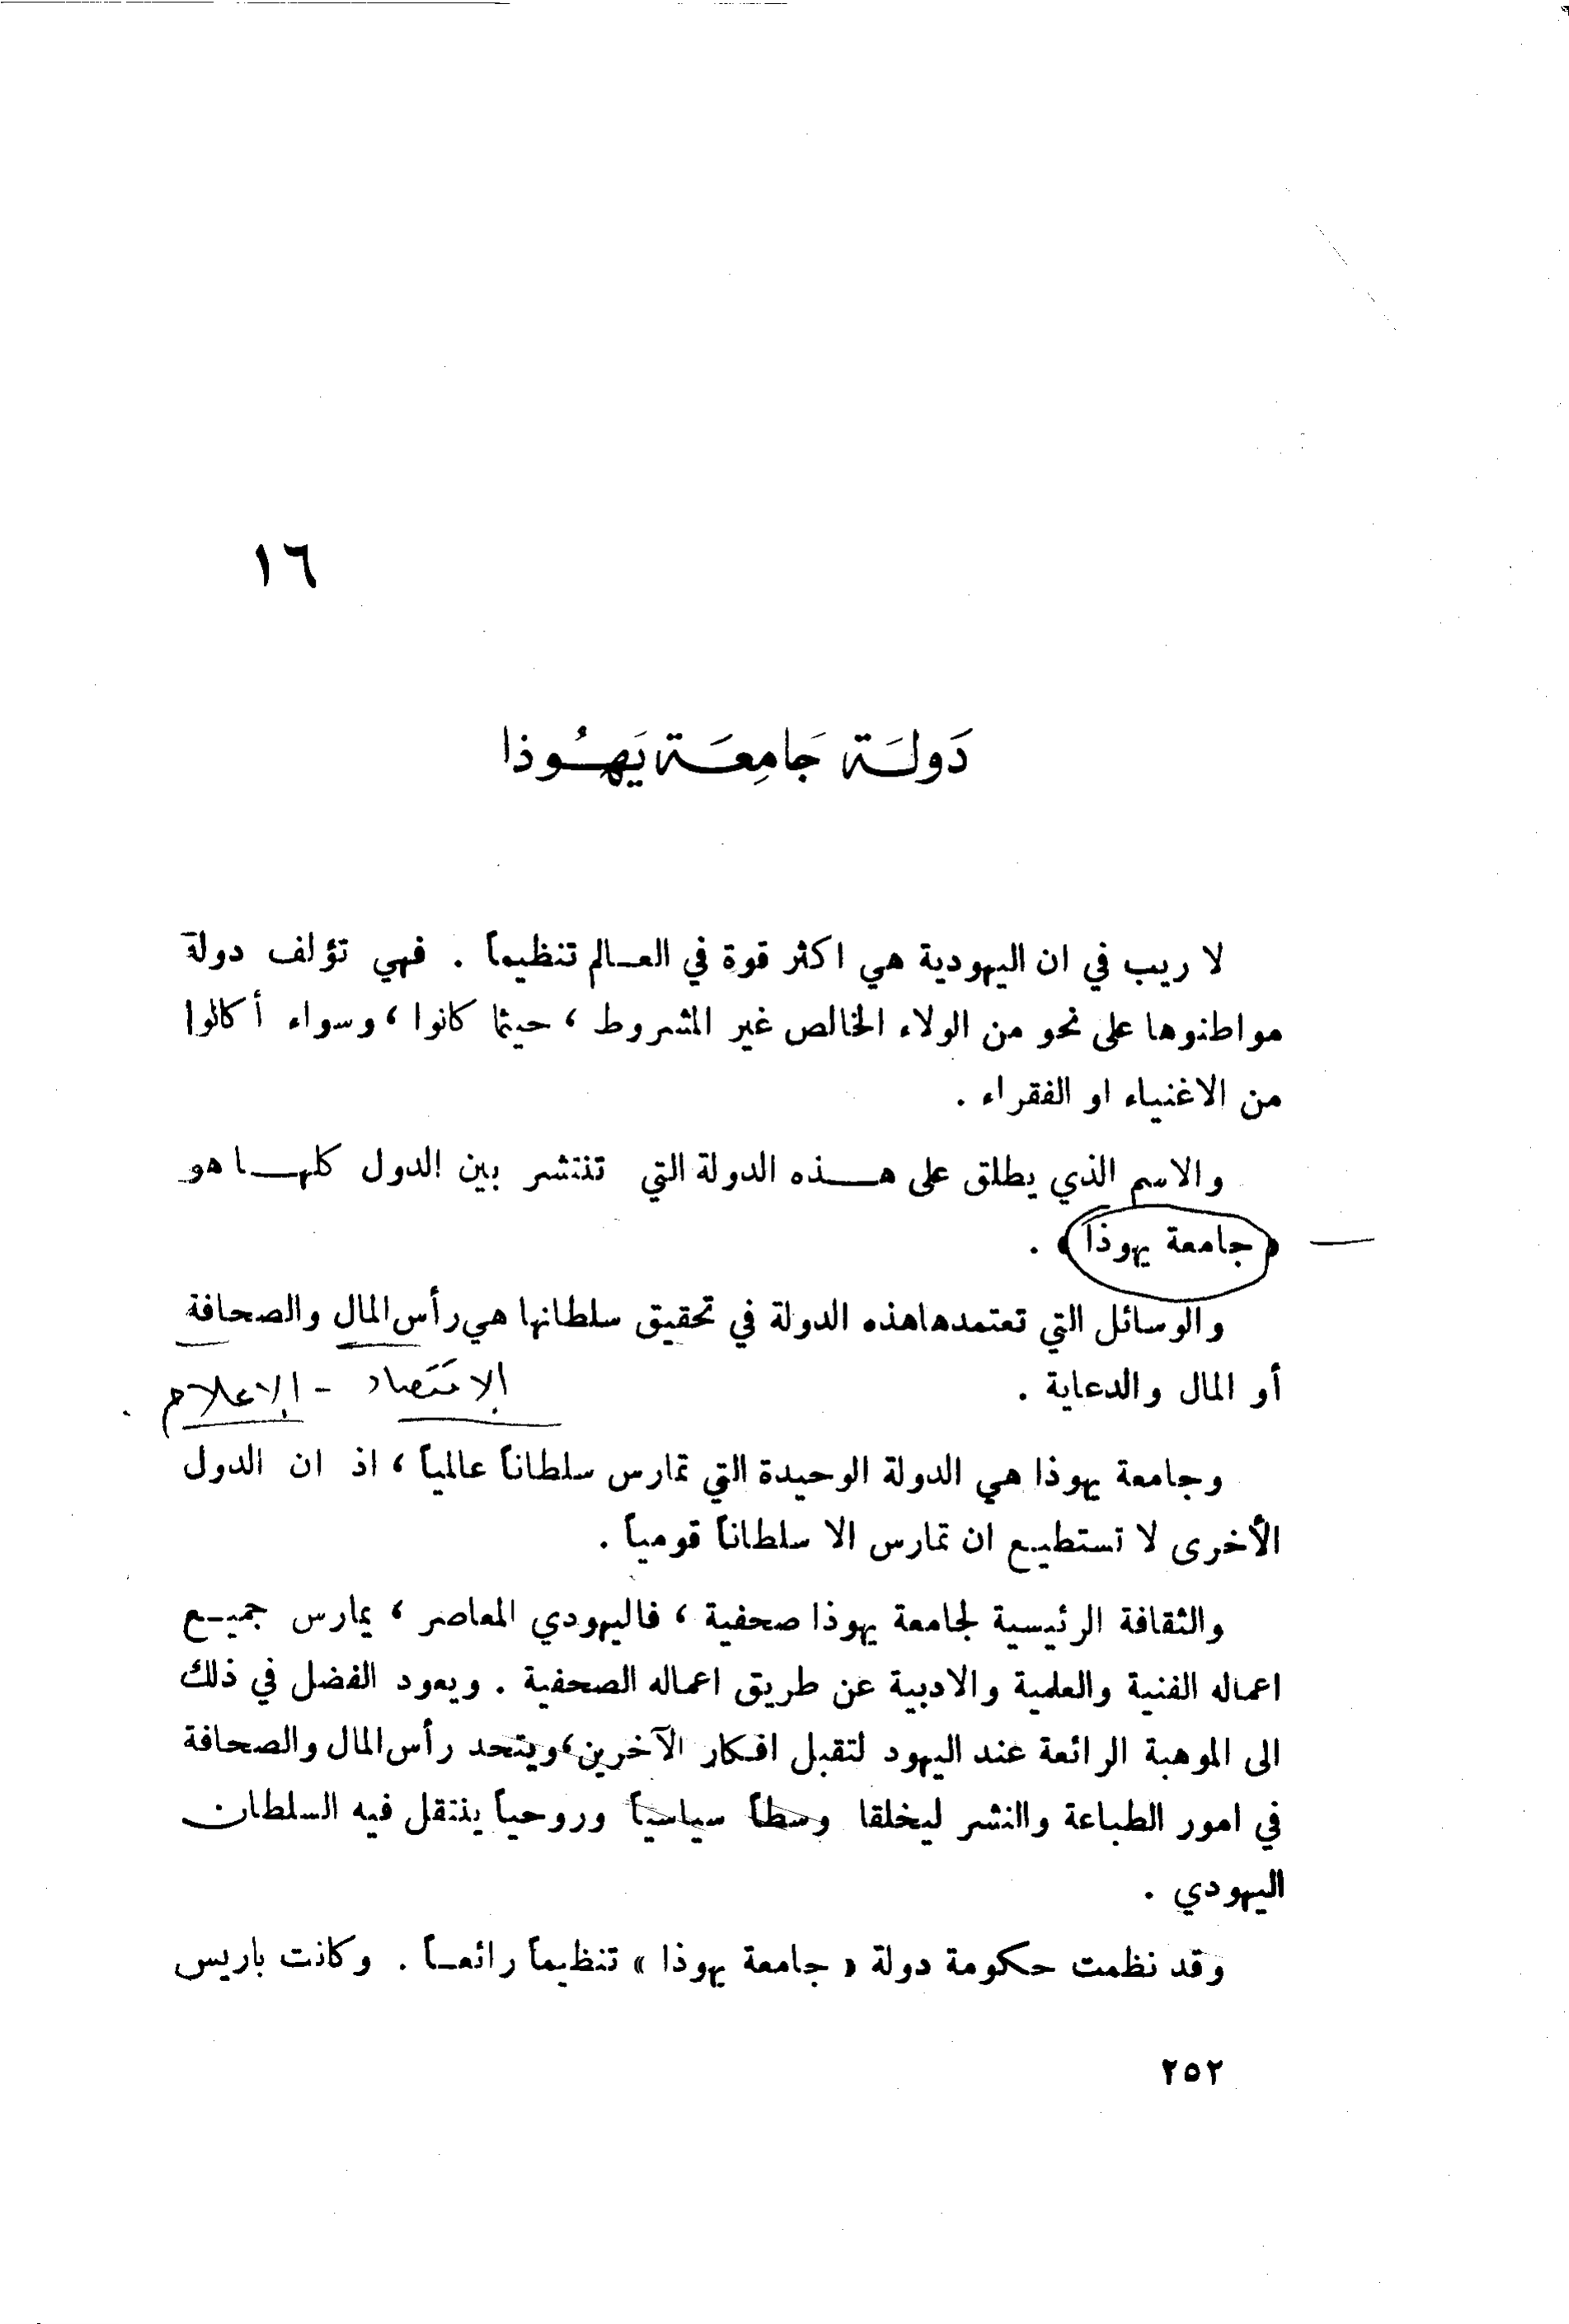 ١٦
دَولَة جَامِعَة يَهُوذا
لا ريب في ان اليهودية هي اكثر قوة في العـالم تنظيماً . فهي تؤلف دولة
مواطنوها على نحو من الولاء الخالص غير المشروط ، حيثما كانوا ، وسواء أكانوا
من الاغنياء او الفقراء .
والاسم الذي يطلق على هـــذه الدولة التي تنتشر بين الدول كلهـــا هو
« جامعة يهوذا » .
والوسائل التي تعتمدها هذه الدولة في تحقيق سلطانها هي رأس المال والصحافة
أو المال والدعاية .
الاقتصاد - الاعلام
وجامعة يهوذا هي الدولة الوحيدة التي تمارس سلطاناً عالمياً ، اذ ان الدول
الأخرى لا تستطيع ان تمارس الا سلطاناً قومياً .
والثقافة الرئيسية لجامعة يهوذا صحفية ، فاليهودي المعاصر ، يمارس جميـع
اعماله الفنية والعلمية والادبية عن طريق اعماله الصحفية . ويعود الفضل في ذلك
الى الموهبة الرائعة عند اليهود لتقبل افكار الآخرين ، ويتحد رأس المال والصحافة
في امور الطباعة والنشر ليخلقا وسطاً سياسياً وروحياً ينتقل فيه السلطان
اليهودي .
وقد نظمت حكومة دولة « جامعة يهوذا » تنظيماً رائعـاً . وكانت باريس
٢٥٢